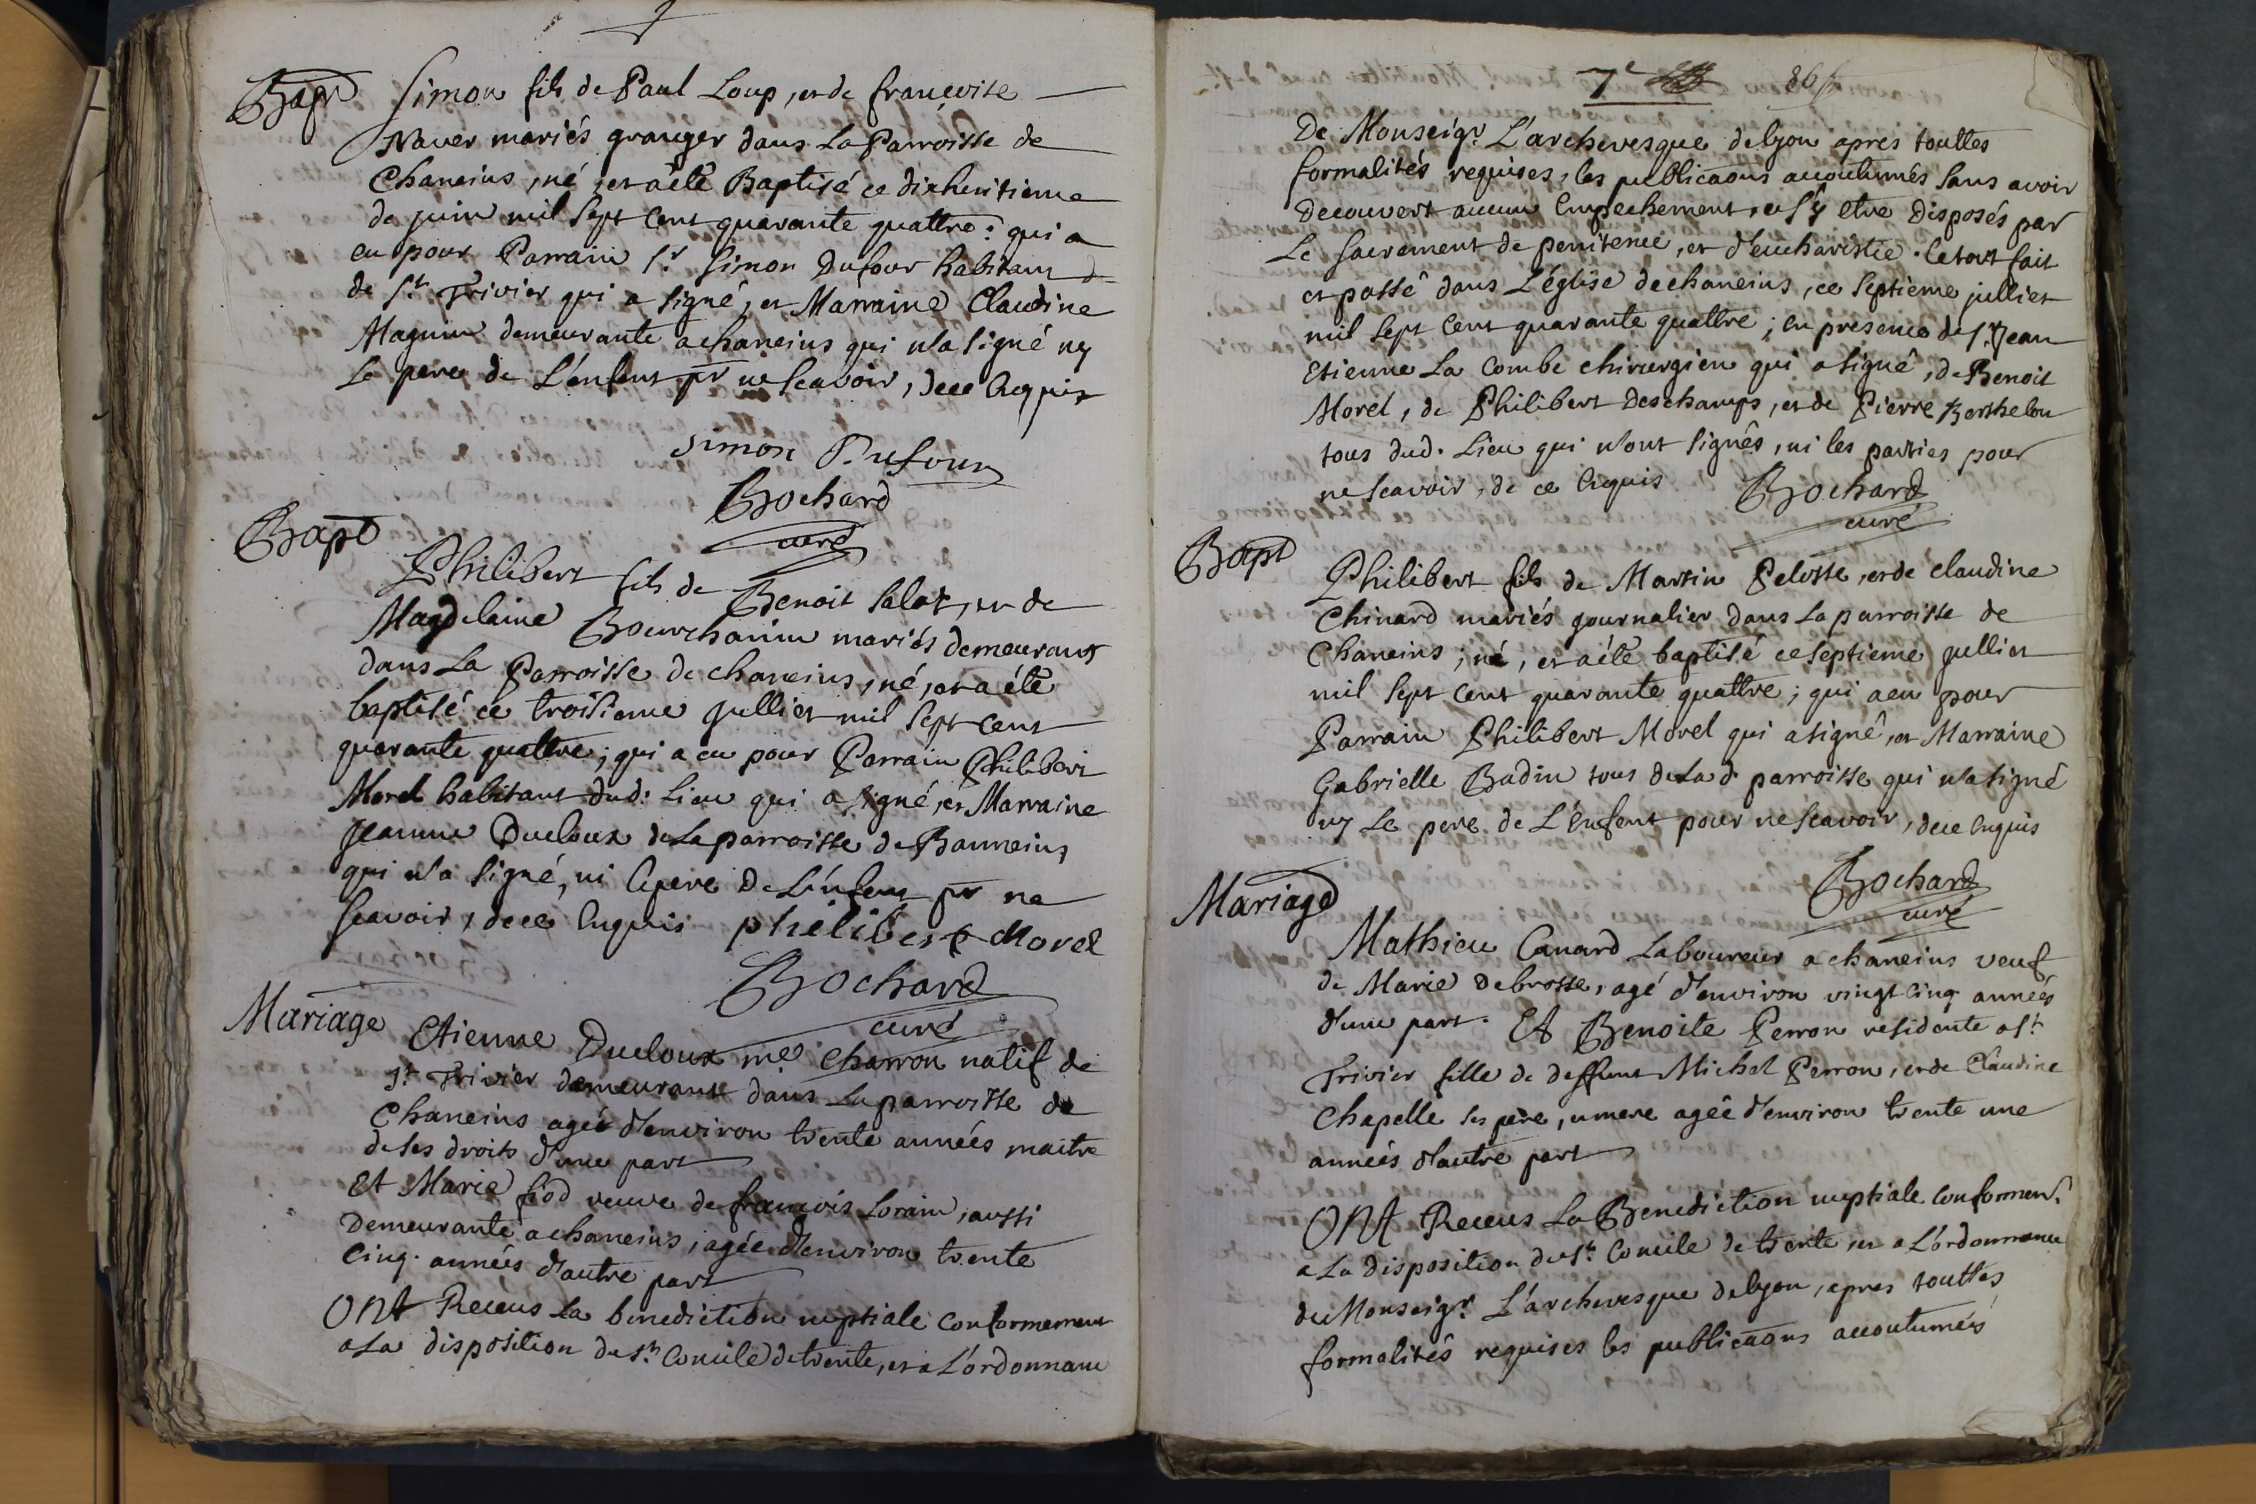 Bapt
Simon fils de Paul Loup, et de françoise
Naver mariés granger dans La Parroisse de
Chaneins, né, et a êtê Baptisé ce dixheutieme
de juin mil sept cent quarante quattre: qui a
eu pour Parrain sr. Simon Dufour habitant
de st. Trivier qui a signê, et Marraine Claudine
Magnin demeurante a chaneins qui n'a signé ny
Le pere de L'enfent pr ne scavoir, de ce Enquis
simon Dufour
Bochard
curé
Bapt
Philibert fils de Benoit Salat, et de
Magdelaine Bourchanin mariés demeurant
dans La Parroisse de chaneins, né, et a êtê
baptisé ce troisieme julliet mil sept cent
quarante quattre; qui a eu pour Parrain Philibert
Morel habitant dud: Lieu qui a signé, et Marraine
jeanne Ducloux de La parroisse de Banneins
qui n'a signé, ni le pere de L'enfent pr ne
scavoir, de ce Enquis philibert Morel
Bochard
curé
Mariage
Etienne Ducloux me. charron natif de
st. Trivier demeurant dans La parroisse de
Chaneins agé d'environ trente années maitre
de ses droits d'une part
Et Marie fiod veuve de françois Lorain, aussi
Demeurante a chaneins, agée d'environ trente
Cinq. années d'autre part
ONt Receus La benediction nuptiale conformement
a La disposition du st. Concile de trente, et a L'ordonnance
7e
86
De Monseigr. L'archevesque de lyon apres touttes
formalités requises, les publicaons accoutumés sans avoir
Decouvert aucun Empechement, et s'y etre Disposés par
Le Sacrement de penitence, et d'eucharistie. Le tout fait
et passê dans L'église de chaneins, ce Septieme julliet
mil sept Cent quarante quattre; en presence de sr. Jean
Etienne La Combe chirurgien qui a signê, de Benoit
Morel, de Philibert Deschamps, et de Pierre Berthelon
tous dud. Lieu qui n'ont signês, ni les parties pour
ne scavoir, de ce Enquis Bochard
curé
Bapt
Philibert fils de Martin Pelosse, et de claudine
Chinard mariés journalier dans La parroisse de
Chaneins; né, et a êtê baptisé ce septieme jullier
mil sept Cent quarante quattre; qui a eu pour
Parrain Philibert Morel qui a signê, et Marraine
Gabrielle Badin tous de La d. parroisse qui n'a signé
ny Le pere de L'Enfent pour ne scavoir, de ce Enquis
Bochard
curé
Mariage
Mathieu Canard Laboureur a chaneins veuf
de Marie Debrosse, agé d'environ vingt Cinq années
d'une part. Et Benoite Perron residente a st.
Trivier fille de deffunt Michel Perron, et de Claudine
Chapelle ses pere, et mere agêe d'environ trente une
années d'autre part
ONt Receus La Benediction nuptiale Conforment.
a La disposition du st. Concile de trente, et a L'ordonnance
de Monseigr. L'archevesque de lyon, apres touttes
formalités requises les publicaons accoutumées